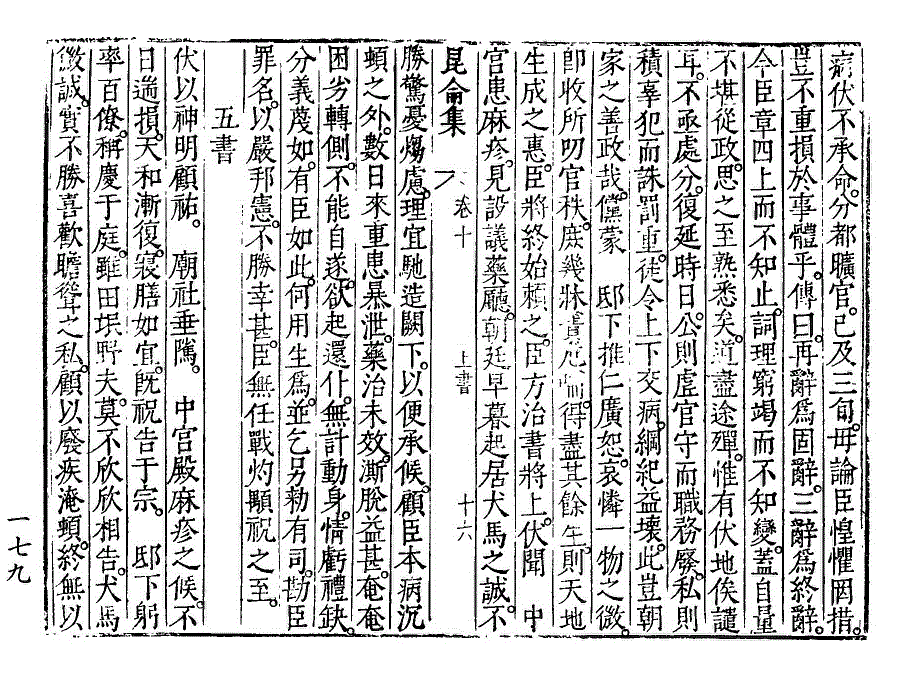 病伏不承命。分都曠官。已及三旬。毋論臣惶懼罔措。
豈不重損於事體乎。傳曰。再辭爲固辭。三辭爲終辭。
今臣章四上而不知止。詞理窮竭而不知變。蓋自量
不堪從政。思之至熟悉矣。道盡途殫。惟有伏地俟譴
耳。不亟處分。復延時日。公則虛官守而職務廢。私則
積辜犯而誅罰重。徒令上下交病。綱紀益壞。此豈朝
家之善政哉。儻蒙 邸下推仁廣恕。哀憐一物之微。
卽收所叨官秩。庶幾牀簀危喘。得盡其餘生。則天地
生成之惠。臣將終始賴之。臣方治書將上。伏聞 中
宮患麻疹。見設議藥廳。朝廷早暮起居。犬馬之誠。不
昆侖集 卷十 上書 十六
勝驚憂煬慮。理宜馳造闕下。以便承候。顧臣本病沉
頓之外。數日來重患暴泄。藥治未效。澌脫益甚。奄奄
困劣。轉側不能自遂。欲起還仆。無計動身。情虧禮缺。
分義蔑如。有臣如此。何用生爲。並乞另勑有司。勘臣
罪名。以嚴邦憲。不勝幸甚。臣無任戰灼顒祝之至。
五書
伏以神明顧祐。 廟社垂隲。 中宮殿麻疹之候。不
日遄損。天和漸復。寢膳如宜。旣祝告于宗。 邸下躬
率百僚。稱慶于庭。雖田氓野夫。莫不欣欣相告。犬馬
微誠。實不勝喜歡瞻聳之私。顧以廢疾淹頓。終無以
一七九